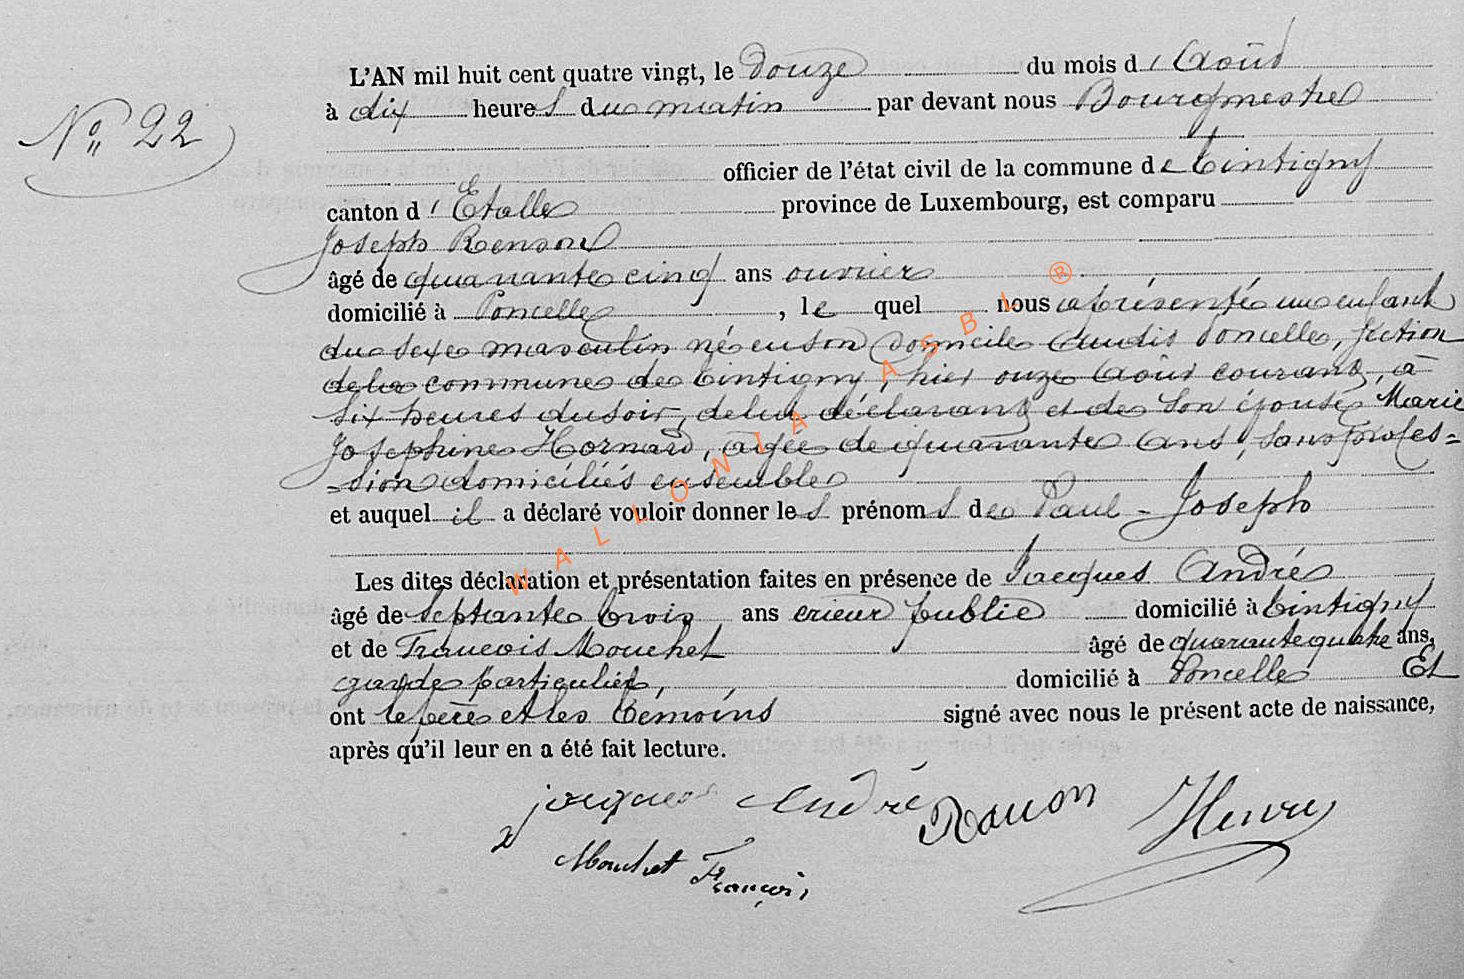 N° 22
L'AN mil huit cent quatre vingt, le douze du mois d'Août
à dix heures du matin par devant nous Bourgmestre
officier de l'état civil de la commune de Tintigny
canton d'Etalle province de Luxembourg, est comparu
Joseph Renson
âgé de quarante cinq ans ouvrier
domicilié à Poncelle, le quel nous a présenté un enfant
du sexe masculin né en son domicile audit Poncelle, section
de la commune de Tintigny, hier onze Août courant, à
six heures du soir, de lui déclarant et de son épouse Marie
Josephine Hornard, agée de quarante ans, sans profes=
=sion domiciliés ensemble
et auquel il a déclaré vouloir donner les prénoms de Paul-Joseph
Les dites déclaration et présentation faites en présence de Jacques André
âgé de septante trois ans crieur public domicilié à Tintigny
et de Francois Mouchet âgé de quarante quatre ans,
garde particulier, domicilié à Poncelle Et
ont le père et les témoins signé avec nous le présent acte de naissance,
après qu'il leur en a été fait lecture.
jacques André Renson Henry
Mouchet François
WALLONIA ASBL ®